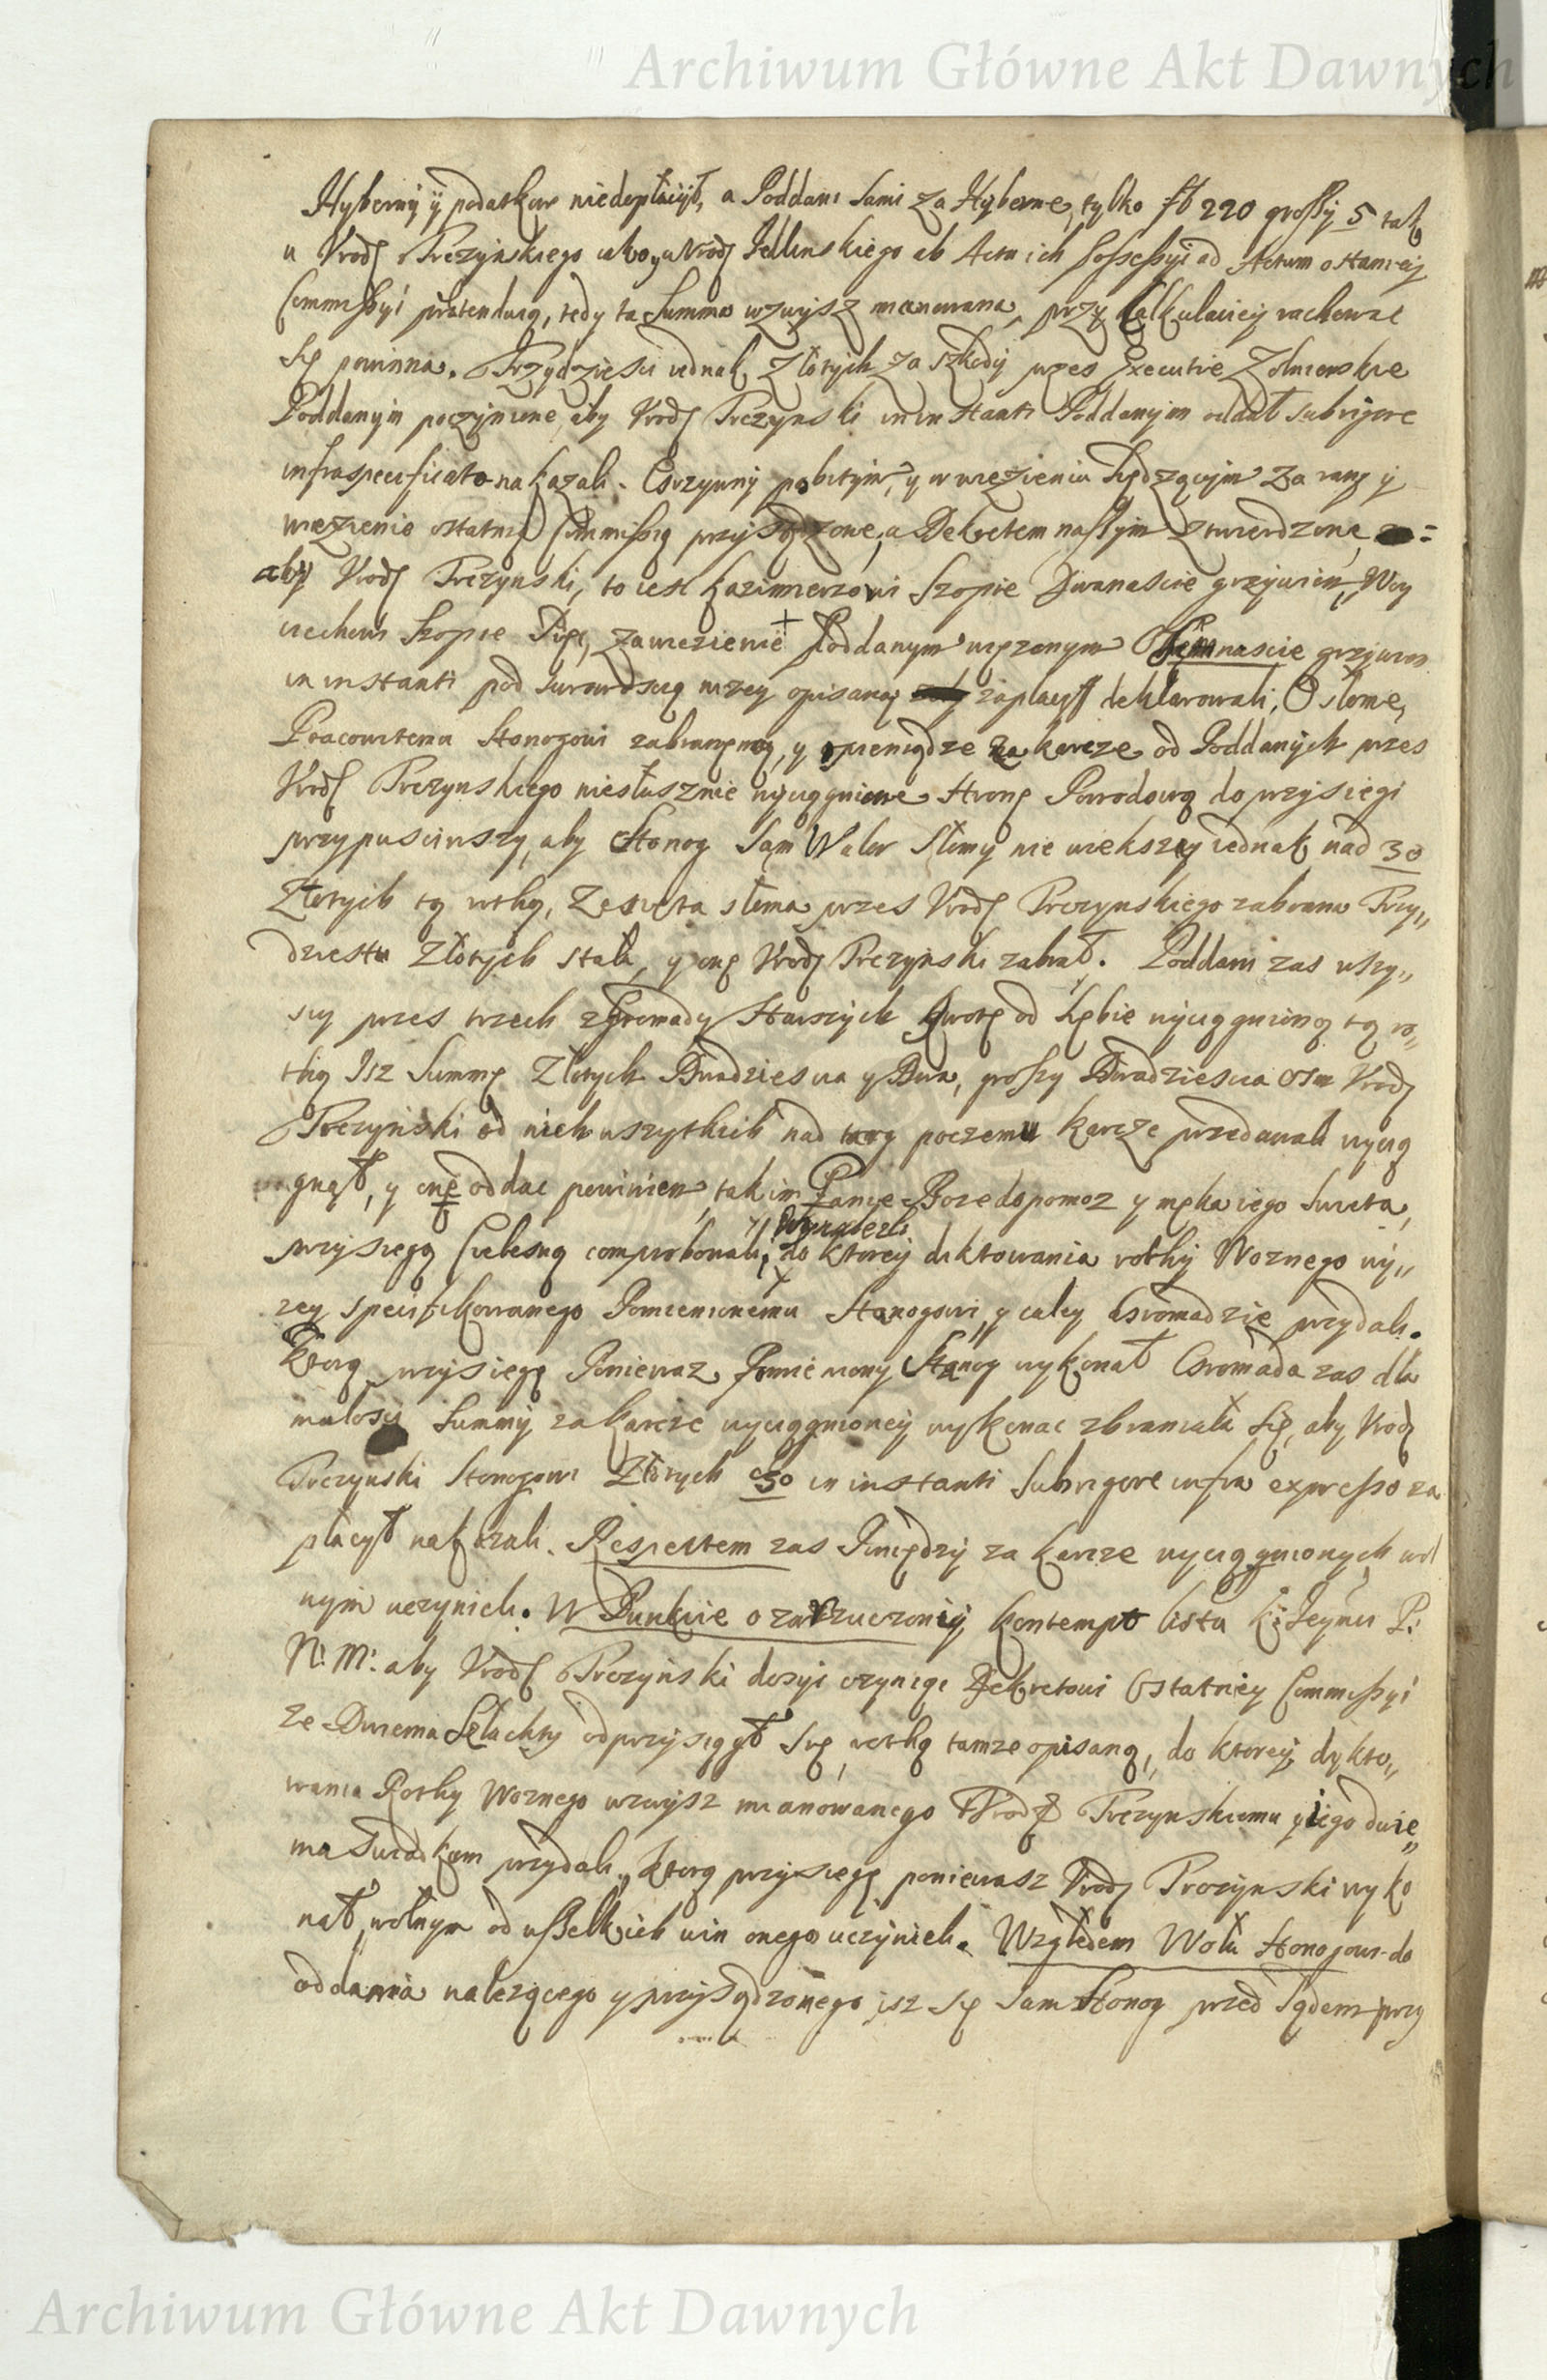 Archiwum Główne Akt Dawnych
Hyberny y podatkow niedopłacył, a Poddani sami za Hybernę tylko fl 220 groszy 5 tak
u Vrodz Preczynskiego iako y u Vrodz Jedlinskiego ab Actu ich possessyi ad Actum ostatniey
Commissyi prætenduią, tedy ta Summa wzwysz mianowana, przy kalkulaciey rachowac
się powinna. Trzydziesci iednak Złotych za szkody przes Executie Zołnierskie
Poddanym poczynione aby Vrodz Preczynski in instanti Poddanym oddał sub rigore
infraspecificato nakazali. Grzywny pobitym, y w wiezieniu siędzącym za rany y
wiezienie ostatnią Commissią przysądzone, a Dekretem naszym ztwierdzone
aby Vrodz Preczynski, to iest Kazimierzowi Szopie Dwanascie grzywien, Woy
ciechowi Szopie Pięc, za wiezienie Poddanym męczonym Osmnascie grzywien
in instanti pod surowoscią nizey opisaną zapłacył deklarowali, O słomę,
Pracowitemu Stonogowi zabraną, y o pieniądze za karcze od Poddanych przes
Vrodz Preczynskiego niesłusznie wyciągnione Stronę Powodową do przysiegi
przypusciwszy, aby Stonog sąm Walor słomy nie wiekszey iednak nad 30
Złotych tą rothą, Ze swoia słoma przes Vrodz Preczynskiego zabrana Trzy,,
dziestu Złotych stała, y onę Vrodz Preczynski zabrał. Poddani zas wszy,,
scy przes trzech z Gromady Starszych kwotę od siebie wyciągnioną tą ro,,
thą Isz Summę Złotych Dwadziescia y Dwa, groszy Dwadziescia osm Vrodz
Preczyński od nich wszytkich nad targ poczemu karcze przedawali wycią
gnął, y onę oddac powinien, tak im Panie Boze dopomoz y męka iego swieta,
Wynalezli
przysiegą Cielesną comprobowali, do ktorey diktowania rothy Woznego wy,,
zey specifikowanego Pomienionemu Stonogowi, y całey Gromadzie przydali.
Ktorą przysiegę Poniewaz Pomieniony Stonog wykonał Gromada zas dla
małosci Summy za karcze wyciągnioney wykonac zbraniała się, aby Vrodz
Preczynski Stonogowi Złotych 30 in instanti sub rigore infra expresso za
płacył nakazali. Respectem zas Pieniędzy za karcze wyciągnionych wol
nym uczynieli. W Punkcie o zarzucziony kontempt listu K: Jeymci P:
N: M: aby Vrodz Preczyński dosyc czyniąc Dekretowi Ostatniey Commissyi
ze Dwiema Szlachty odprzysiągł się, rothą tamze opisaną, do ktorey dykto,,
wania Rothy Woznego wzwysz mianowanego Vrodz Preczynskiemu y iego dwie,,
ma Swiadkom przydali, ktorą przysiegę poniewasz Vrodz Preczynski wyko
nał, wolnym od wszelkich win onego uczynieli. Względem Wołu Stonogowi do
oddania nalezącego y przysądzonego, isz się sam Stonog przed Sądem przy
Archiwum Główne Akt Dawnych